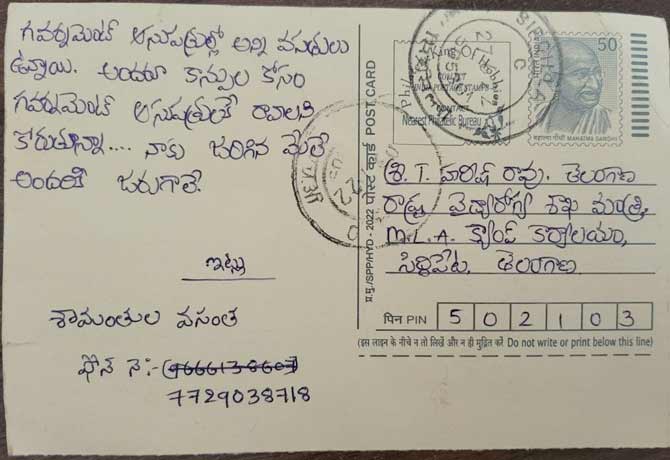 గవర్నమెంట్ ఆసుపత్రుల్లో అన్ని వసతులు
ఉన్నాయి. అందరూ కాన్పుల కోసం
గవర్నమెంట్ ఆసుపత్రులకే రావాలని
కోరుతున్నా.... నాకు జరిగిన మేలే
అందరికి జరుగాలే.
ఇట్లు
శామంతుల వసంత
ఫోన్ నె:- 9666138607
7729038718
प्र.मु./SPP/HYD - 2022 पोस्ट कार्ड POST CARD
CONTACT
Nearest Philatelic Bureau
भारत INDIA
50
महात्मा गाँधी MAHATMA GANDHI
శ్రీ. T. హరీష్ రావు. తెలంగాణ
రాష్ట్ర వైద్యారోగ్య శాఖ మంత్రి,
M.L.A. క్యాంప్ కార్యాలయం,
సిద్దిపేట. తెలంగాణ
पिन PIN 5 0 2 1 0 3
(इस लाइन के नीचे न तो लिखें और न ही मुद्रित करें Do not write or print below this line)